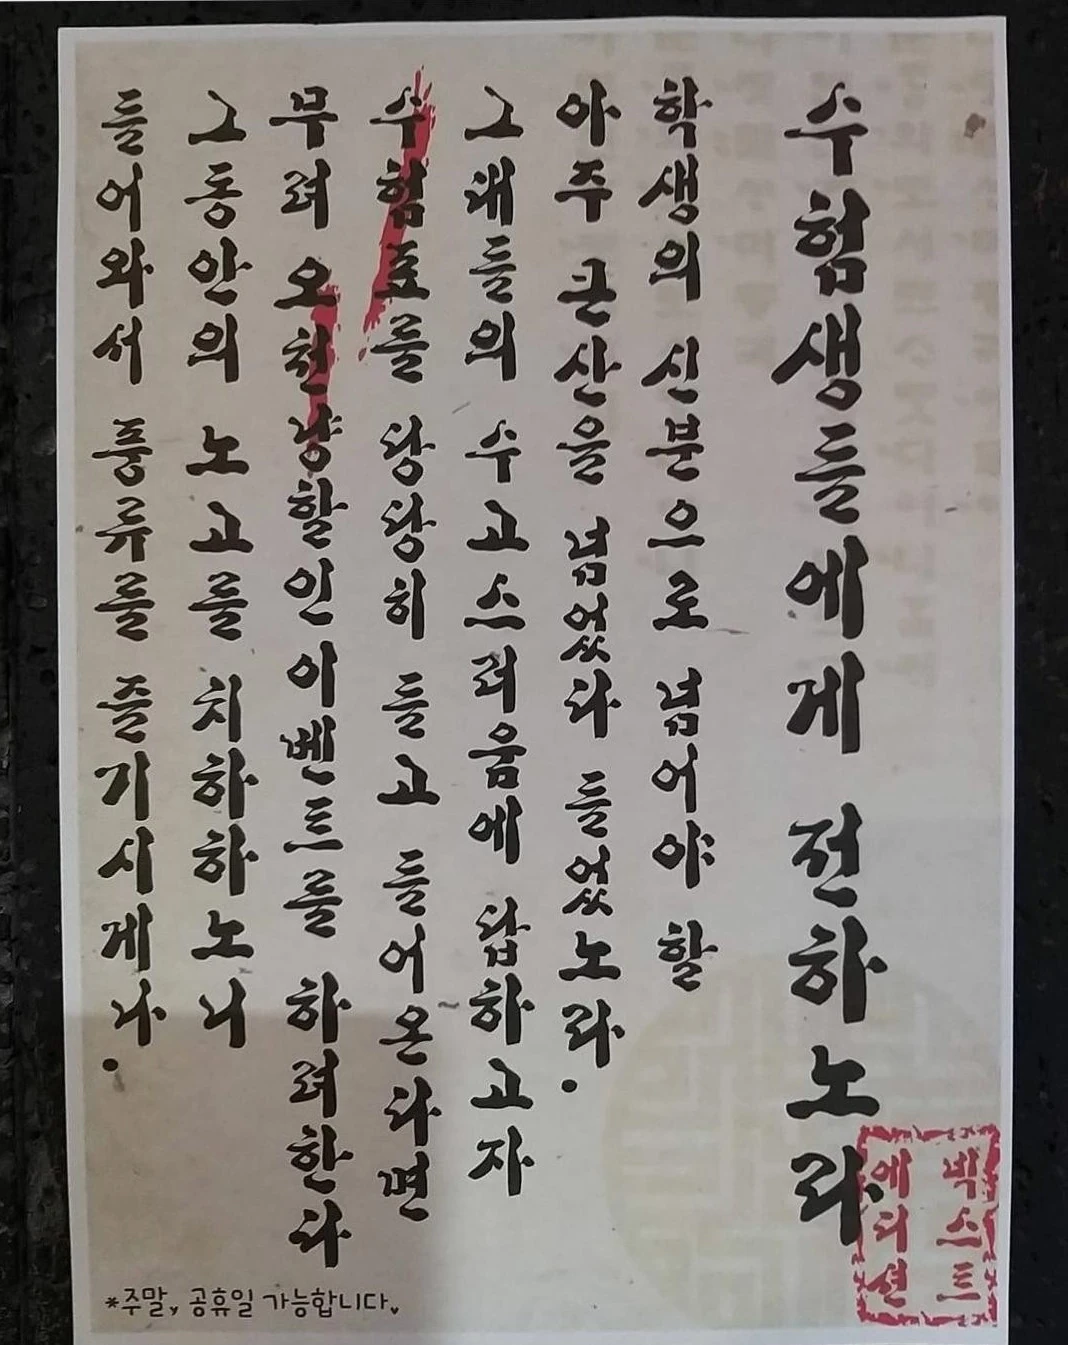 수험생들에게 전하노라
학생의 신분으로 넘어야 할
아주 큰 산을 넘었다 들었노라.
그대들의 수고스러움에 답하고자
수험표를 당당히 들고 들어온다면
무려 오천냥할인이벤트를 하려한다
그동안의 노고를 치하하노니
들어와서 풍류를 즐기시게나.
넥스트
에디션
*주말, 공휴일 가능합니다.